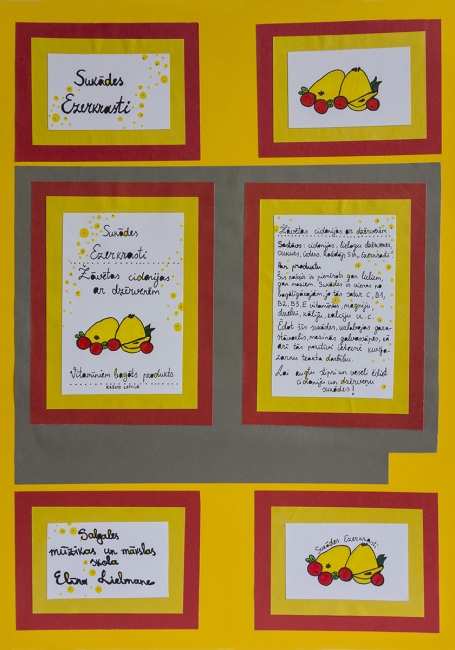 Sukādes
Ezerkrasti
Sukādes
Ezerkrasti
Žāvētas cidonijas
ar dzērvenēm
Vitamīniem bagāts produkts
RAŽOTS LATVIJĀ
Žāvētas cidonijas ar dzērvenēm
Sastāvs: cidonijas, lielogu dzērvenes,
cukurs, ūdens. Ražotājs SIA „Ezerkrasti"
Par produktu
Šis našķis ir piemērots gan lieliem,
gan maziem. Sukāde ir viena no
bagātīgākajām, jo tās satur C, B1,
B2, B3, E vitamīnus, magniju
dzelzi, kāliju, kalciju u.c.
Ēdot šīs sukādes, uzlabojas paša-
stāvoklis, mazinās galvassāpes, kā
arī tās pozitīvi ietekmē kuņģa-
zarnu trakta darbību.
Lai augtu stipri un veseli ēdiet
cidoniju un dzērveņu
sukādes!
Salgales
mūzikas un mākslas
skola
Elīna Liebmane
Sukādes Ezerkrasti